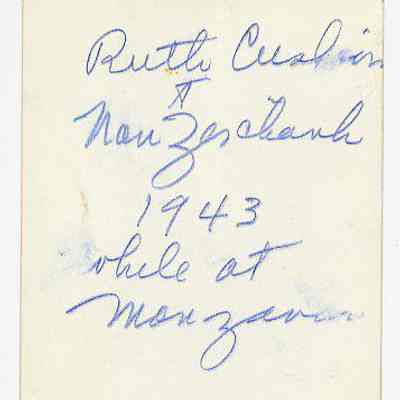 Ruth Cushion
+
Nan Zeschank
1943
while at
Manzanar